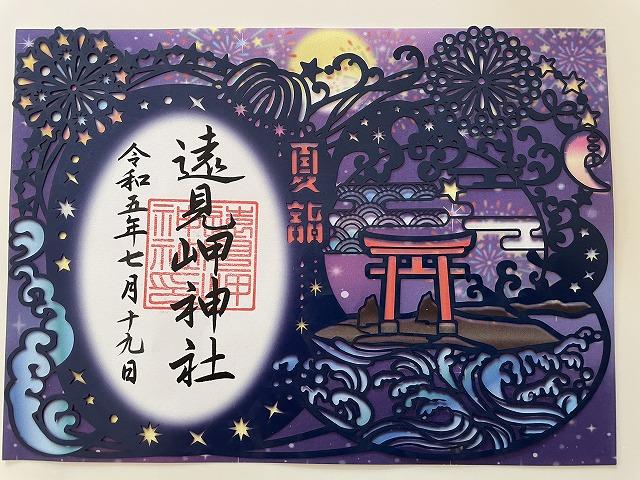 夏詣
遠見岬神社
令和五年七月十九日